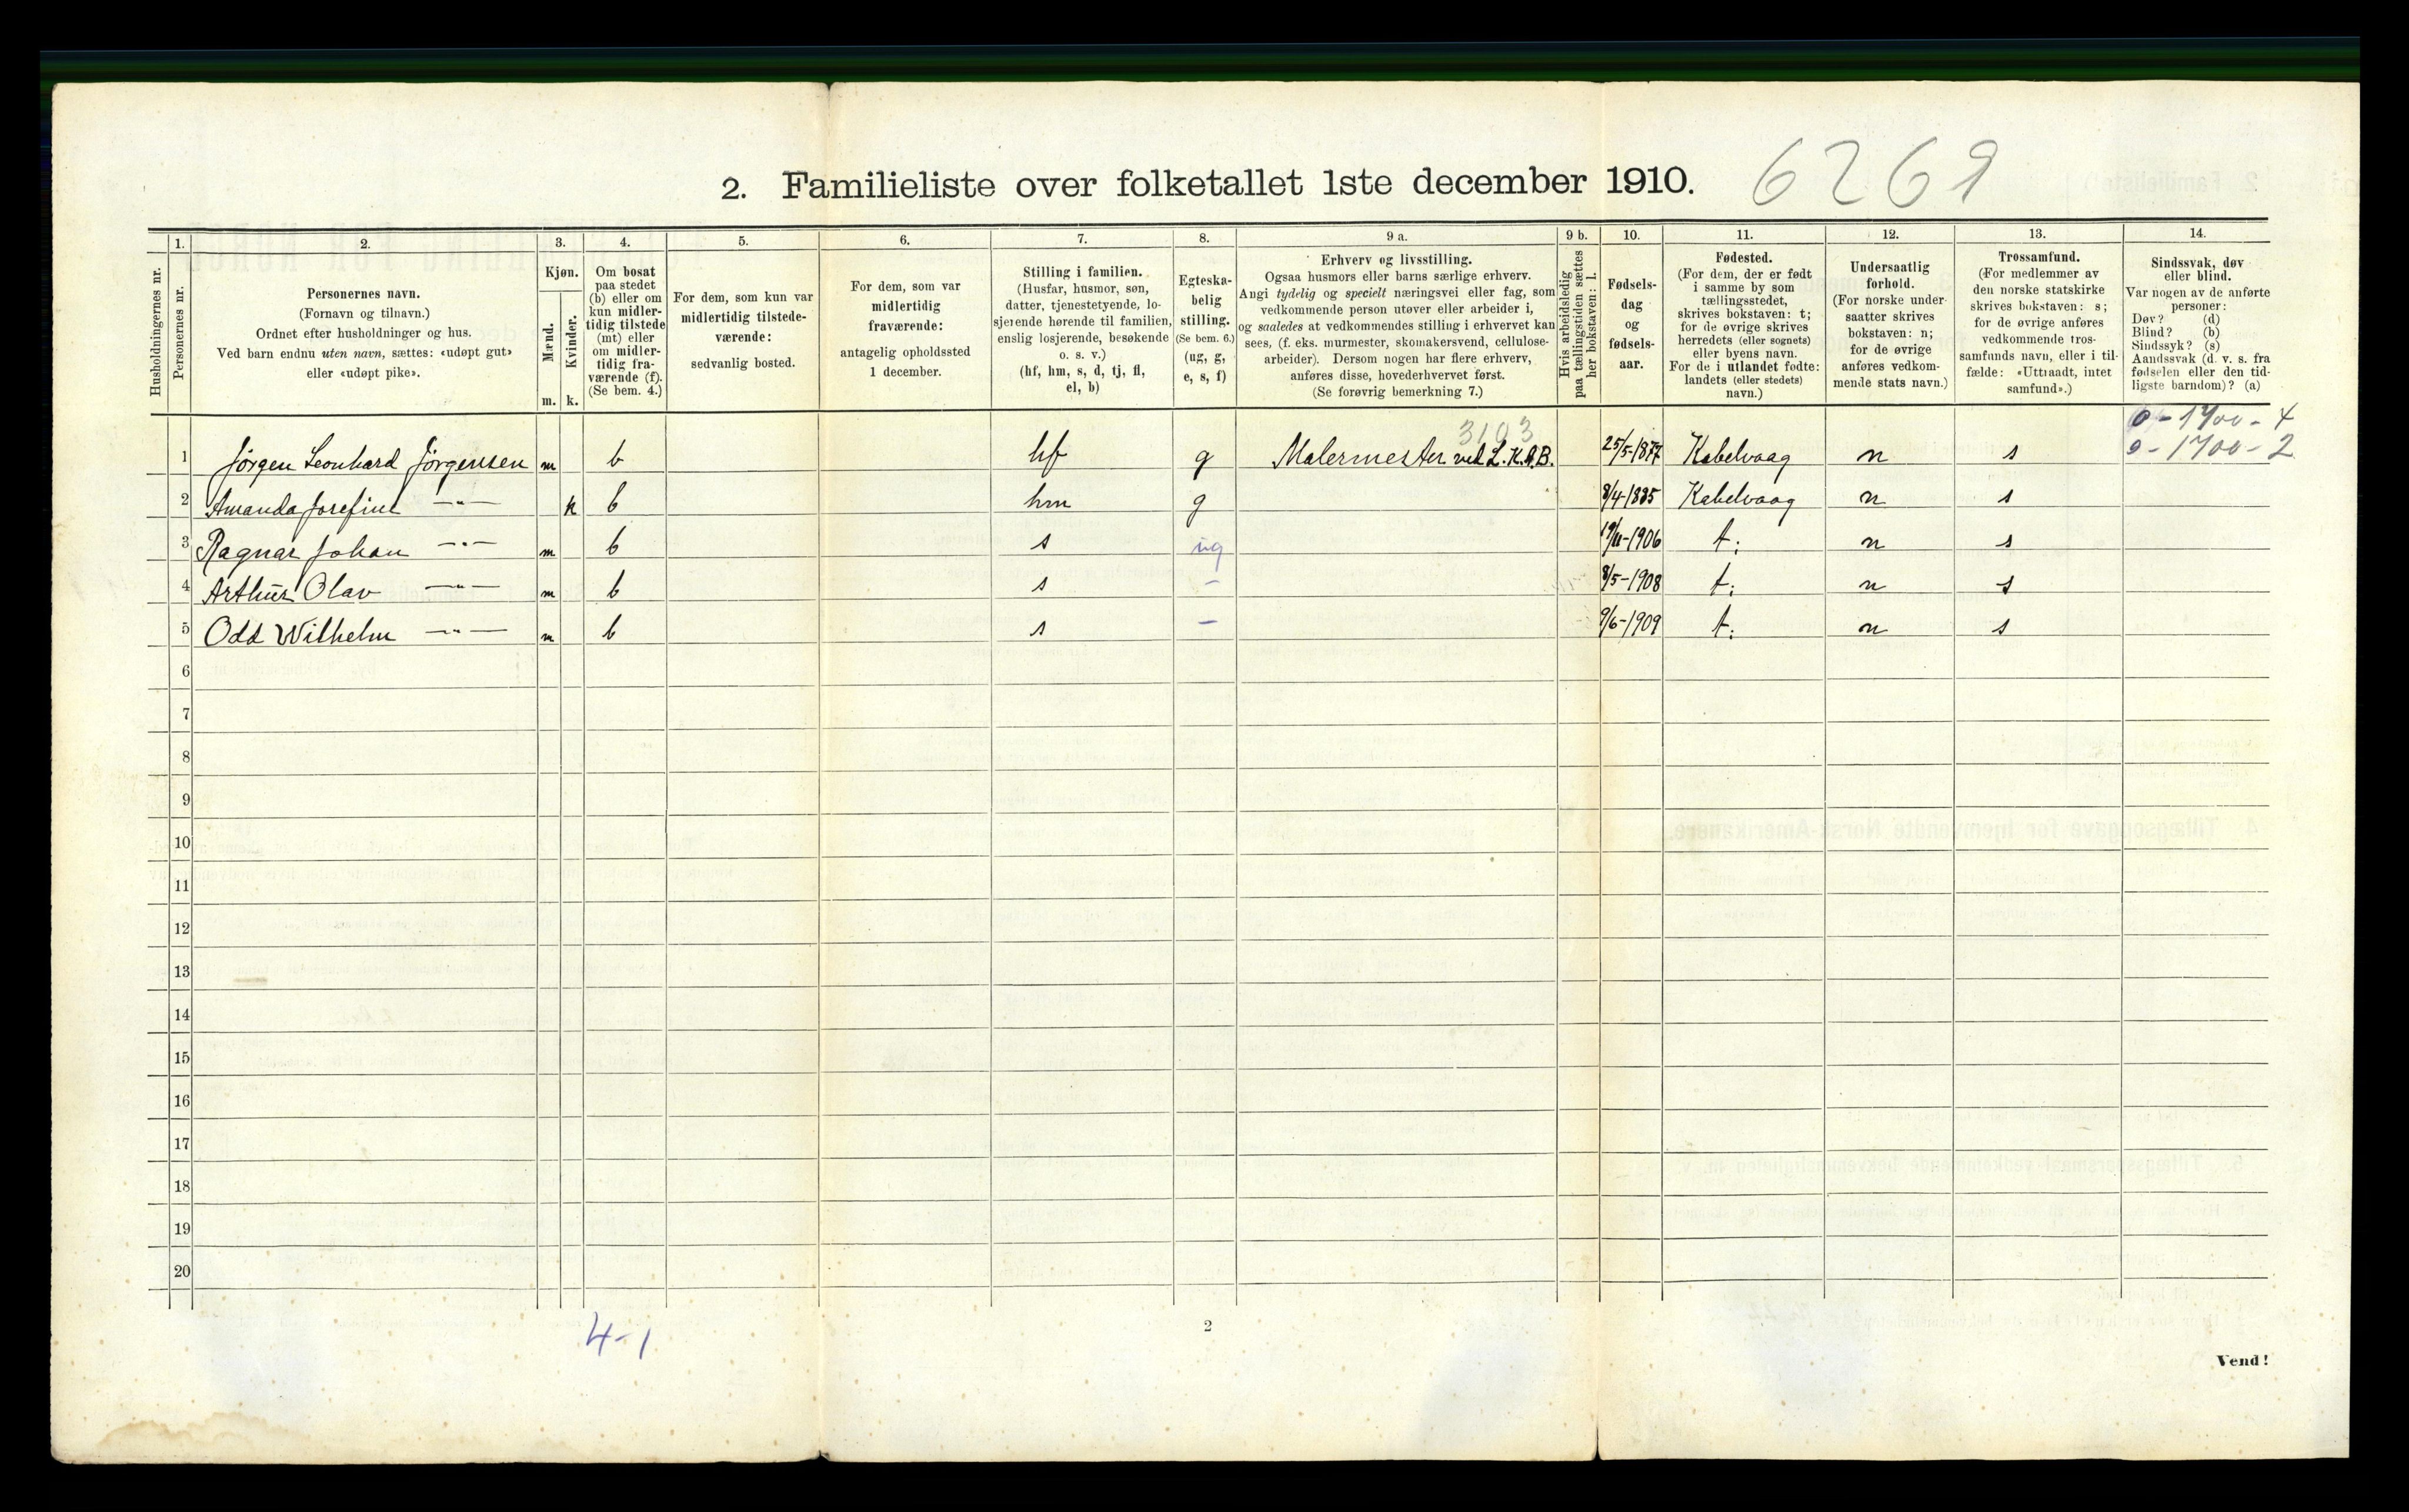 2. Familieliste over folketallet 1ste december 1910. 6269
1. 2. 3. 4. 5. 6. 7. 8. 9 a. 9 b. 10. 11. 12. 13. 14.
Husholdningernes nr.
Personernes nr.
Personernes navn.
(Fornavn og tilnavn.)
Ordnet efter husholdninger og hus.
Ved barn endnu uten navn, sættes: «udøpt gut»
eller «udøpt pike».
Kjøn.
Mænd.
Kvinder.
m. k.
Om bosat
paa stedet
(b) eller om
kun midler-
tidig tilstede
(mt) eller
om midler-
tidig fra-
værende (f).
(Se bem. 4.)
For dem, som kun var
midlertidig tilstede-
værende:
sedvanlig bosted.
For dem, som var
midlertidig
fraværende:
antagelig opholdssted
1 december.
Stilling i familien.
(Husfar, husmor, søn,
datter, tjenestetyende, lo-
sjerende hørende til familien,
enslig losjerende, besøkende
o. s. v.)
(hf, hm, s, d, tj, fl,
el, b)
Egteska-
belig
stilling.
(Se bem. 6.)
(ug, g,
e, s, f)
Erhverv og livsstilling.
Ogsaa husmors eller barns særlige erhverv.
Angi tydelig og specielt næringsvei eller fag, som
vedkommende person utøver eller arbeider i,
og saaledes at vedkommendes stilling i erhvervet kan
sees, (f. eks. murmester, skomakersvend, cellulose-
arbeider). Dersom nogen har flere erhverv,
anføres disse, hovederhvervet først.
(Se forøvrig bemerkning 7.)
Hvis arbeidsledig
paa tællingstiden sættes
her bokstaven: l.
Fødsels-
dag
og
fødsels-
aar.
Fødested.
(For dem, der er født
i samme by som
tællingsstedet,
skrives bokstaven: t;
for de øvrige skrives
herredets (eller sognets)
eller byens navn.
For de i utlandet fødte:
landets (eller stedets)
navn.)
Undersaatlig
forhold.
(For norske under-
saatter skrives
bokstaven: n;
for de øvrige
anføres vedkom-
mende stats navn.)
Trossamfund.
(For medlemmer av
den norske statskirke
skrives bokstaven: s;
for de øvrige anføres
vedkommende tros-
samfunds navn, eller i til-
fælde: «Uttraadt, intet
samfund».)
Sindssvak, døv
eller blind.
Var nogen av de anførte
personer:
Døv? (d)
Blind? (b)
Sindssyk? (s)
Aandssvak (d. v. s. fra
fødselen eller den tid-
ligste barndom)? (a)
0-1700-4
3103
0-1700-2
1 Jørgen Leonhard Jørgensen m b hf g Malermester ved L.K.A.B. 25/5-1877 Kabelvaag n s
2 Amanda Josefine —"— k b hm g 8/4-1885 Kabelvaag n s
3 Ragnar Johan —"— m b s ug 19/11-1906 t: n s
4 Arthur Olav —"— m b s - 8/5-1908 t: n s
5 Odd Wilhelm —"— m b s - 9/6-1909 t: n s
6
7
8
9
10
11
12
13
14
15
16
17
18
19
20
4-1
2
Vend!